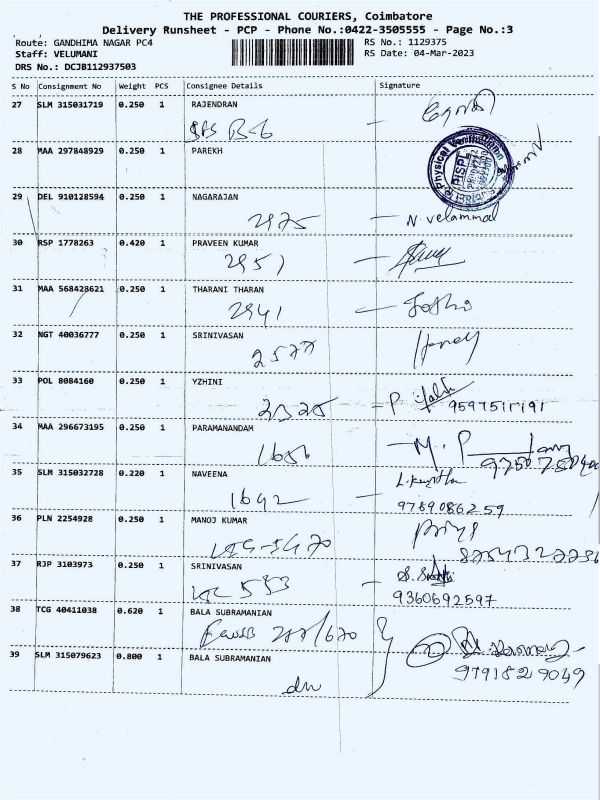 THE PROFESSIONAL COURIERS, Coimbatore
Delivery Runsheet - PCP - Phone No.:0422-3505555 - Page No.:3
Route: GANDHIMA NAGAR PC4 RS No.: 1129375
Staff: VELUMANI RS Date: 04-Mar-2023
DRS No.: DCJB112937503
S No Consignment No Weight PCS Consignee Details Signature
27 SLM 315031719 0.250 1 RAJENDRAN
28 MAA 297848929 0.250 1 PAREKH
PISPL
29 DEL 910128594 0.250 1 NAGARAJAN
2975 N. Velammal
30 RSP 1778263 0.420 1 PRAVEEN KUMAR
2951
31 MAA 568428621 0.250 1 THARANI THARAN
2941
32 NGT 40036777 0.250 1 SRINIVASAN
2577
33 POL 8084160 0.250 1 YZHINI
2325 P.
9597511191
34 MAA 296673195 0.250 1 PARAMANANDAM
1656 M. P
35 SLM 315032728 0.220 1 NAVEENA
1642
9789086259
36 PLN 2254928 0.250 1 MANOJ KUMAR
Priya
37 RJP 3103973 0.250 1 SRINIVASAN
553 S.
9360692597
38 TCG 40411038 0.620 1 BALA SUBRAMANIAN
39 SLM 315079623 0.800 1 BALA SUBRAMANIAN
9791829049